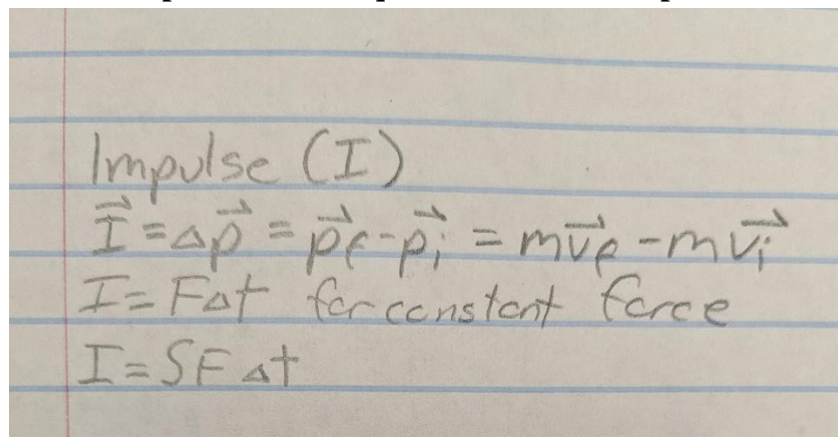 Impulse (I)
I⃗ = Δp⃗ = p⃗f - p⃗i = mv⃗f - mv⃗i
I = FΔt for constant force
I = ∫FΔt